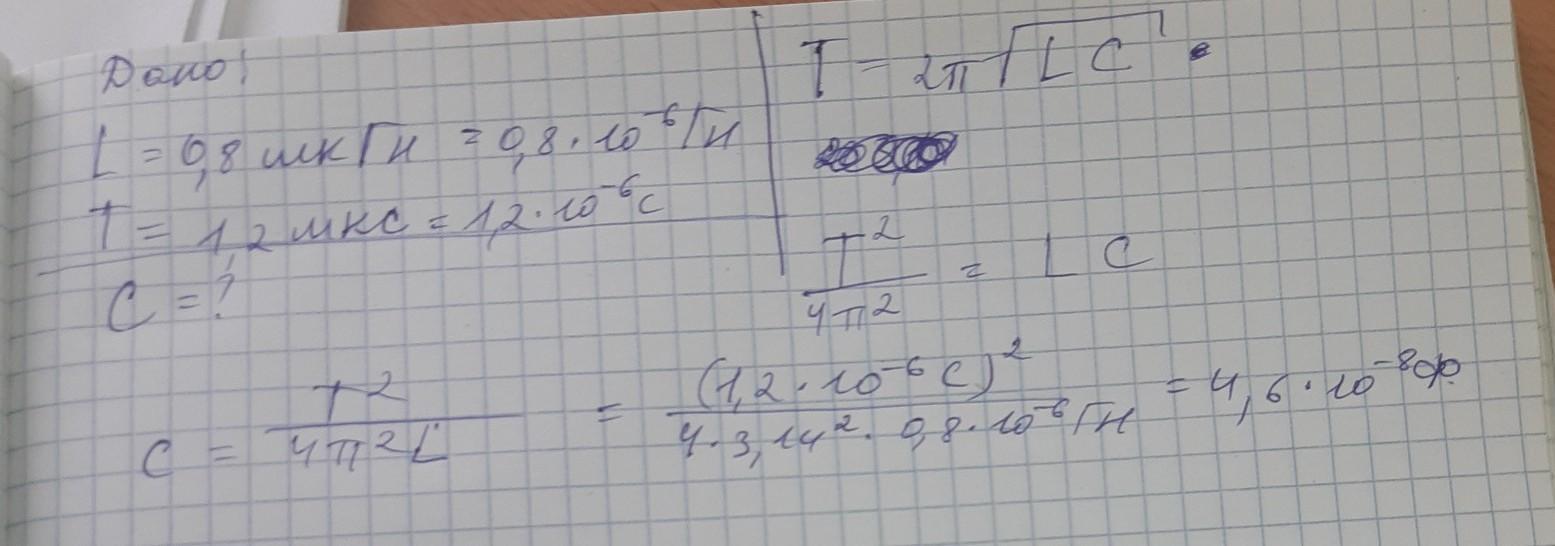 Дано!
L = 0,8 мкГн = 0,8 · 10⁻⁶ Гн
T = 1,2 мкс = 1,2 · 10⁻⁶ с
C = ?
T = 2π√(LC)
T² / 4π² = LC
C = T² / 4π²L = (1,2 · 10⁻⁶ с)² / 4 · 3,14² · 0,8 · 10⁻⁶ Гн = 4,6 · 10⁻⁸ ф.